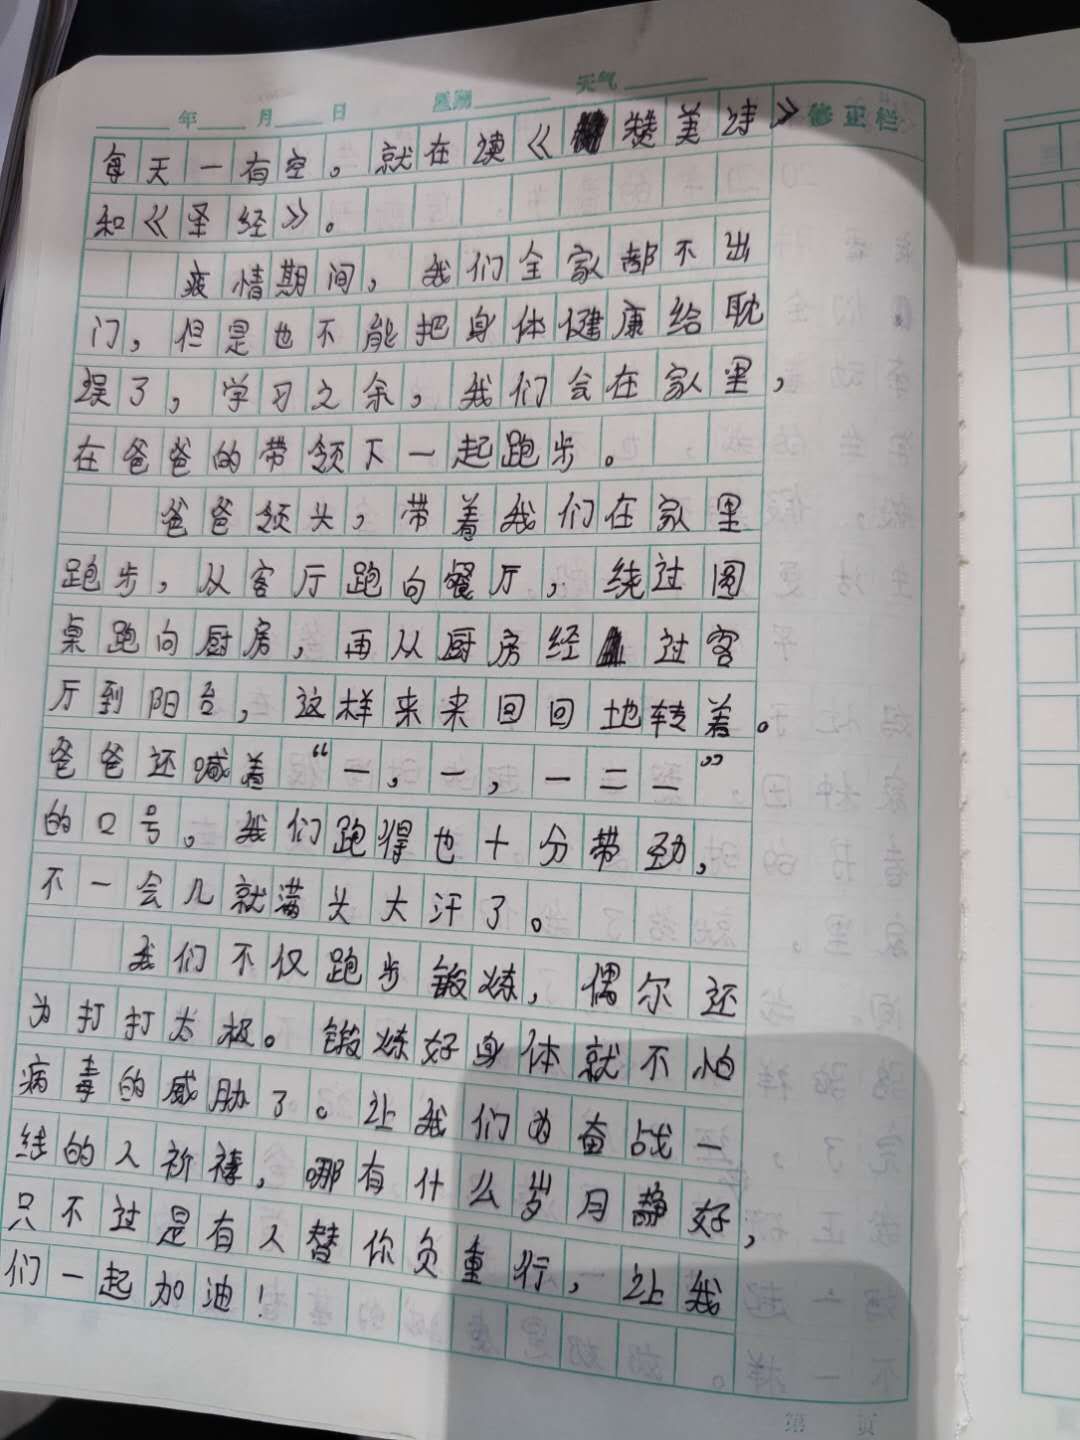 年 月 日 星期 天气 修正栏
每天一有空。就在读《赞美诗》
和《圣经》。
疫情期间，我们全家都不出
门，但是也不能把身体健康给耽
误了，学习之余，我们会在家里，
在爸爸的带领下一起跑步。
爸爸领头，带着我们在家里
跑步，从客厅跑向餐厅，绕过圆
桌跑向厨房，再从厨房经过客
厅到阳台，这样来来回回地转着。
爸爸还喊着“一，一，一二一”
的口号。我们跑得也十分带劲，
不一会儿就满头大汗了。
我们不仅跑步锻炼，偶尔还
为打打太极。锻炼好身体就不怕
病毒的威胁了。让我们为奋战一
线的人祈祷，哪有什么岁月静好，
只不过是有人替你负重行，让我
们一起加油！
第 页